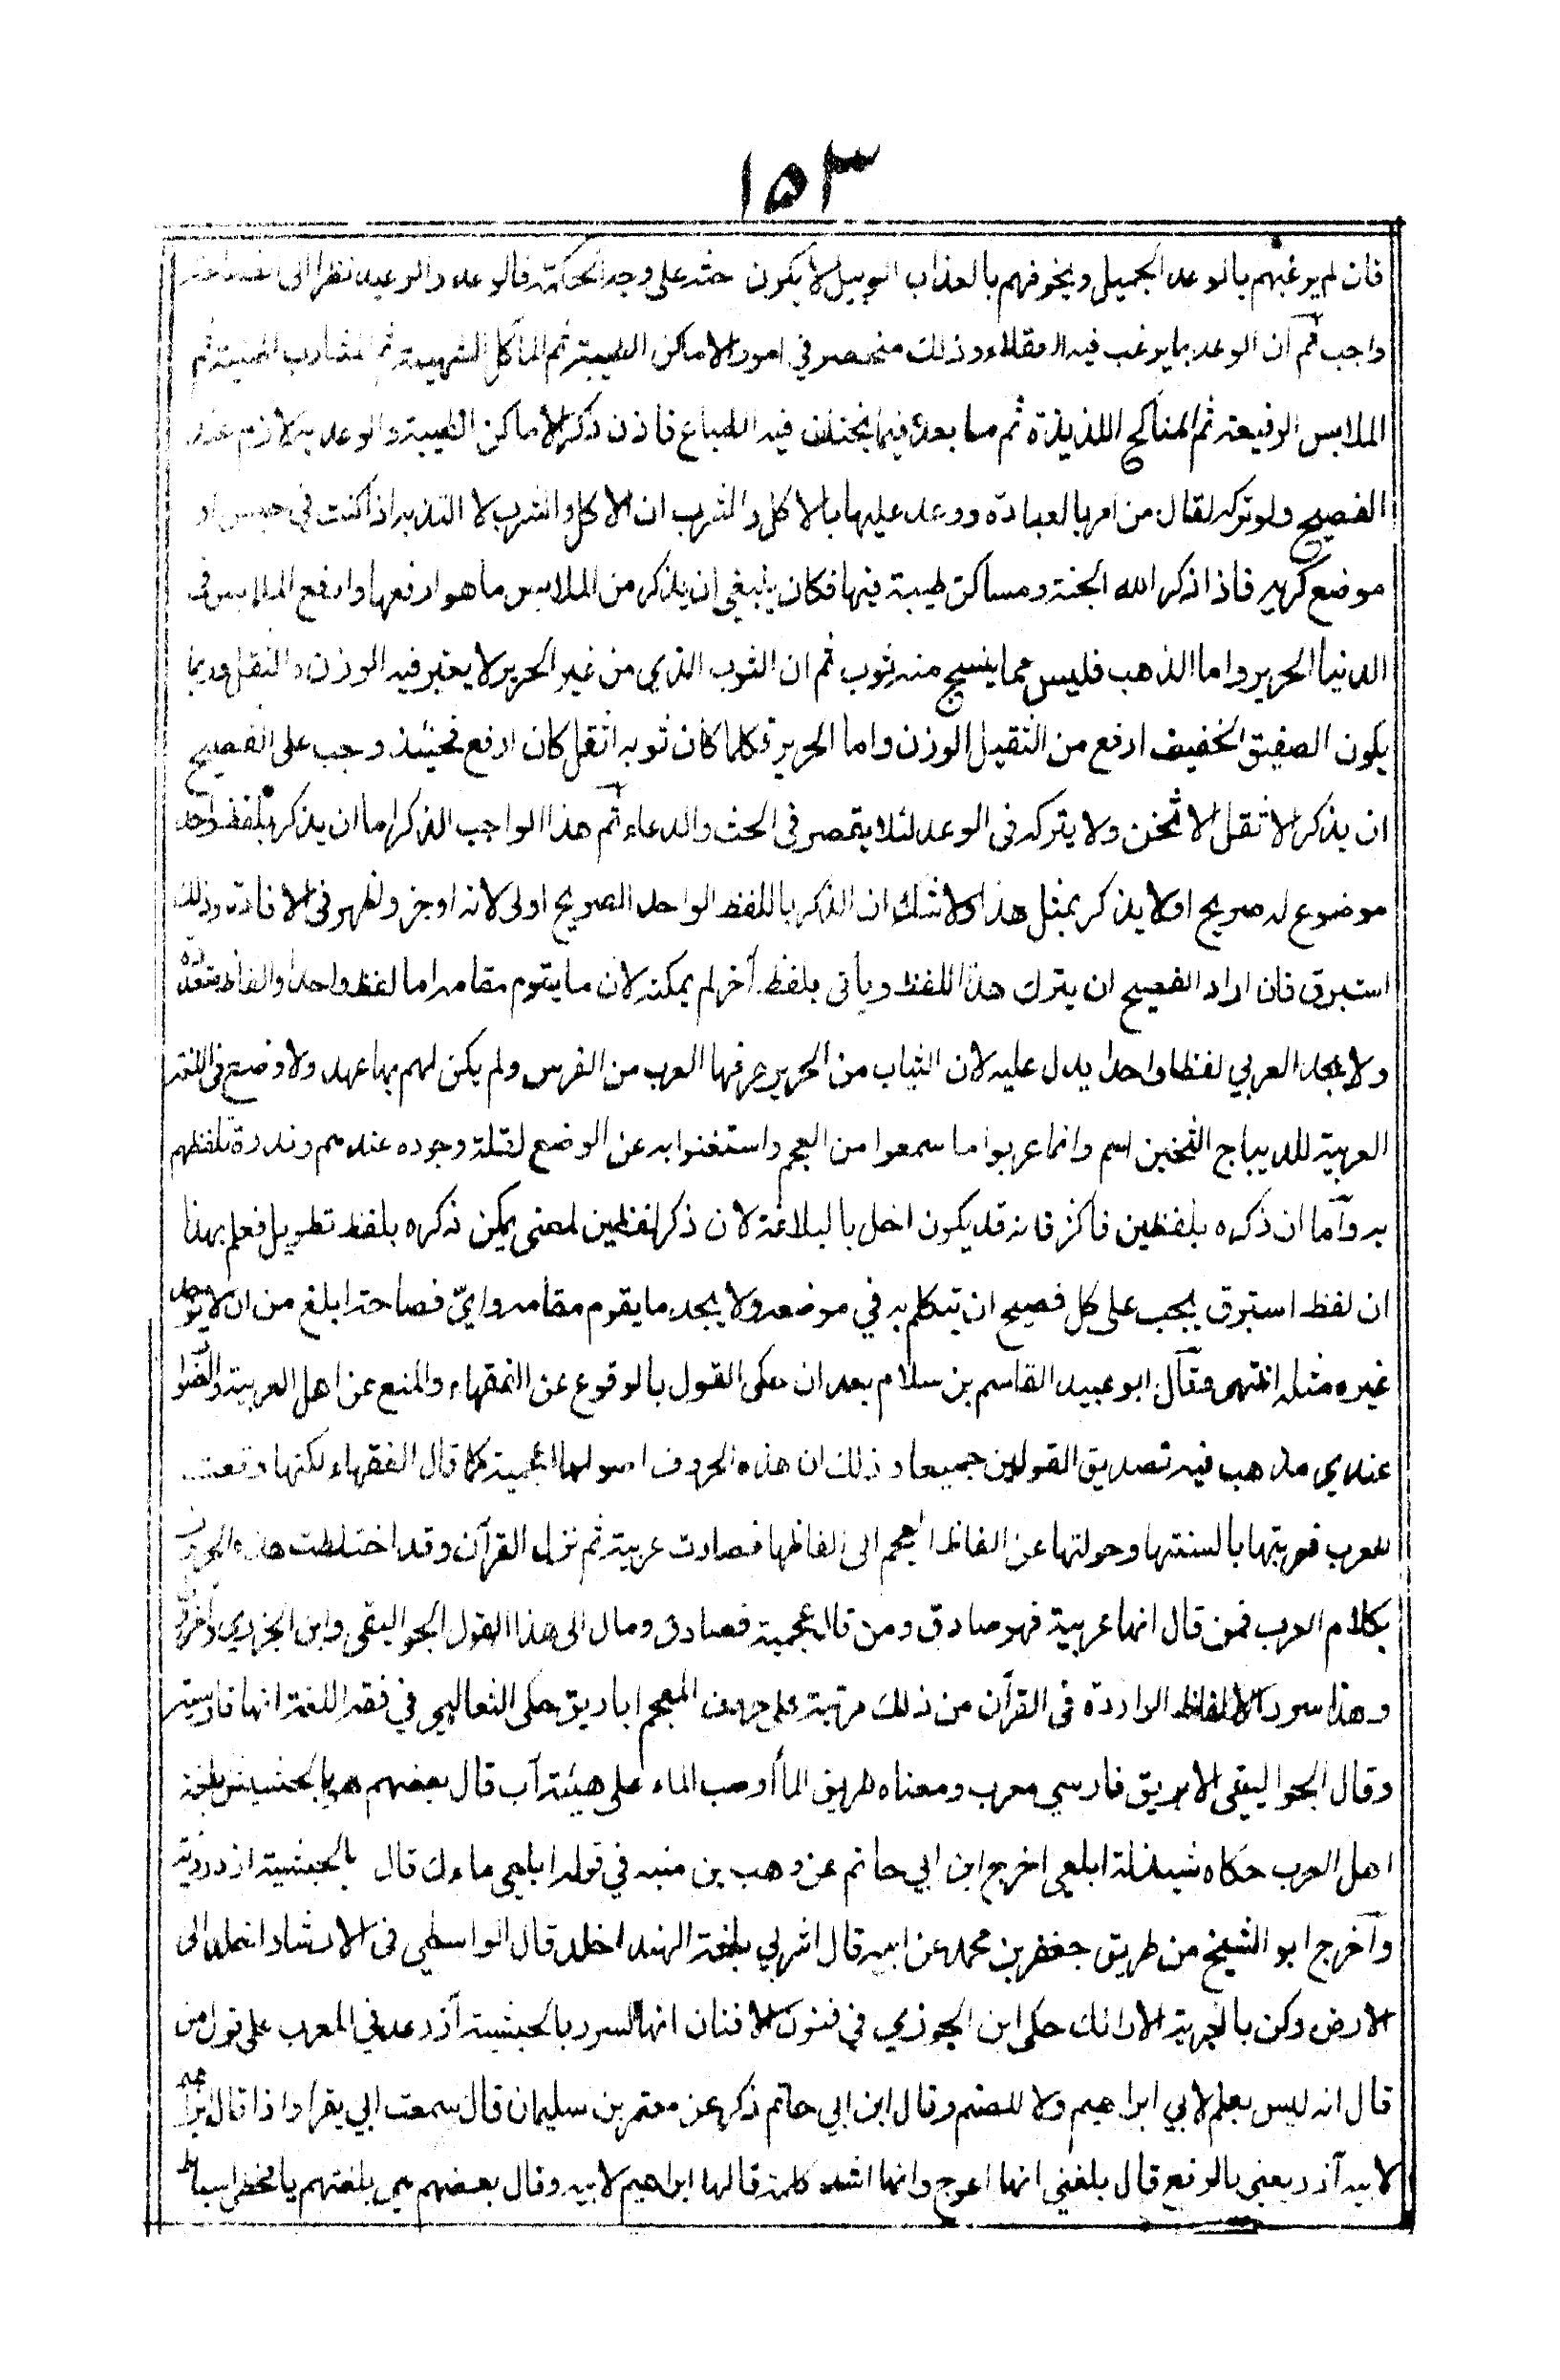 ١٥٣
فان لم يرغبهم بالوعد الجميل ويخوفهم بالعذاب الوبيل لا يكون حثه على وجه الحكمة فالوعد والوعيد نظرا الى الفصاحة
واجب ثم ان الوعد بما يرغب فيه العقلاء وذلك منحصر في امور الاماكن الطيبة ثم المآكل الشهية ثم المشارب الهنية ثم
الملابس الرفيعة ثم المناكح اللذيذة ثم ما بعده فيما يختلف فيه الطباع فاذن ذكر الاماكن الطيبة والوعد به لازم عند
الفصيح ولو تركه لقال من امر بالعبادة ووعد عليها بالاكل والشرب ان الاكل والشرب لا التذ به اذا كنت في حبس او
موضع كريه فاذا ذكر الله الجنة ومساكن طيبة فيها فكان ينبغي ان يذكر من الملابس ما هو ارفعها وارفع الملابس في
الدنيا الحرير واما الذهب فليس مما ينسج منه ثوب ثم ان الثوب الذي من غير الحرير لا يعتبر فيه الوزن والثقل وربما
يكون الصفيق الخفيف ارفع من الثقيل الوزن واما الحرير فكلما كان ثوبه اثقل كان ارفع فحينئذ وجب على الفصيح
ان يذكر الاثقل الاثخن ولا يتركه فى الوعد لئلا يقصر فى الحث والدعاء ثم هذا الواجب الذكر اما ان يذكر بلفظ واحد
موضوع له صريح اولا يذكر بمثل هذا ولا شك ان الذكر باللفظ الواحد الصريح اولى لانه اوجز واظهر فى الافادة وذلك
استبرق فان اراد الفصيح ان يترك هذا اللفظ وياتى بلفظ آخر لم يمكنه لان ما يقوم مقامه اما لفظ واحد او الفاظ متعددة
ولا يجد العربي لفظا واحدا يدل عليه لان الثياب من الحرير عرفها العرب من الفرس ولم يكن لهم بها عهد ولا وضع فى اللغة
العربية للديباج الثخين اسم وانما عربوا ما سمعوا من العجم واستغنوا به عن الوضع لقلة وجوده عندهم وندرة تلفظهم
به وآما ان ذكره بلفظين فاكثر فانه قد يكون اخل بالبلاغة لان ذكر لفظين لمعنى يمكن ذكره بلفظ تطويل فعلم بهذا
ان لفظ استبرق يجب على كل فصيح ان يتكلم به في موضعه ولا يجد ما يقوم مقامه واىّ فصاحة ابلغ من ان لا يوجد
غيره مثله انتهى وقآل ابو عبيد القاسم بن سلام بعد ان حكى القول بالوقوع عن الفقهاء والمنع عن اهل العربية والصواب
عندي مذهب فيه تصديق القولين جميعا وذلك ان هذه الحروف اصولها اعجمية كما قال الفقهاء لكنها وقعت
للعرب فعربتها بالسنتها وحولتها عن الفاظ العجم الى الفاظها فصارت عربية ثم نزل القرآن وقد اختلطت هذه الحروف
بكلام العرب فمن قال انها عربية فهو صادق ومن قال عجمية فصادق ومال الى هذا القول الجواليقى وابن الجزري وآخرون
وهذا سرد الالفاظ الواردة فى القرآن من ذلك مرتبة على حروف المعجم اباريق حكى الثعالبي في فقه اللغة انها فارسية
وقال الجواليقى الابريق فارسي معرب ومعناه طريق الماء أو صب الماء على هيئة آب قال بعضهم هو بالحشيش بلغة
اهل العرب حكاه شيذلة ابلعي اخرج ابن ابي حاتم عن وهب بن منبه في قوله ابلعي ماءك قال بالحبشية ازدرديه
وآخرج ابو الشيخ من طريق جعفر بن محمد عن ابيه قال اشربي بلغة الهند اخلد قال الواسطي فى الارشاد اخلد الى
الارض وكن بالعبرية الارائك حكى ابن الجوزي في فنون الافنان انها السرر بالحبشية آزر عد في المعرب على قول من
قال انه ليس بعلم لابي ابراهيم ولا للصنم وقال ابن ابي حاتم ذكر عن معتمر بن سليمان قال سمعت ابي يقرأ واذ قال ابراهيم
لابيه آزر يعنى بالرفع قال بلغني انها اعوج وانها اشد كلمة قالها ابراهيم لابيه وقال بعضهم هي بلغتهم يا مخطى اسباط